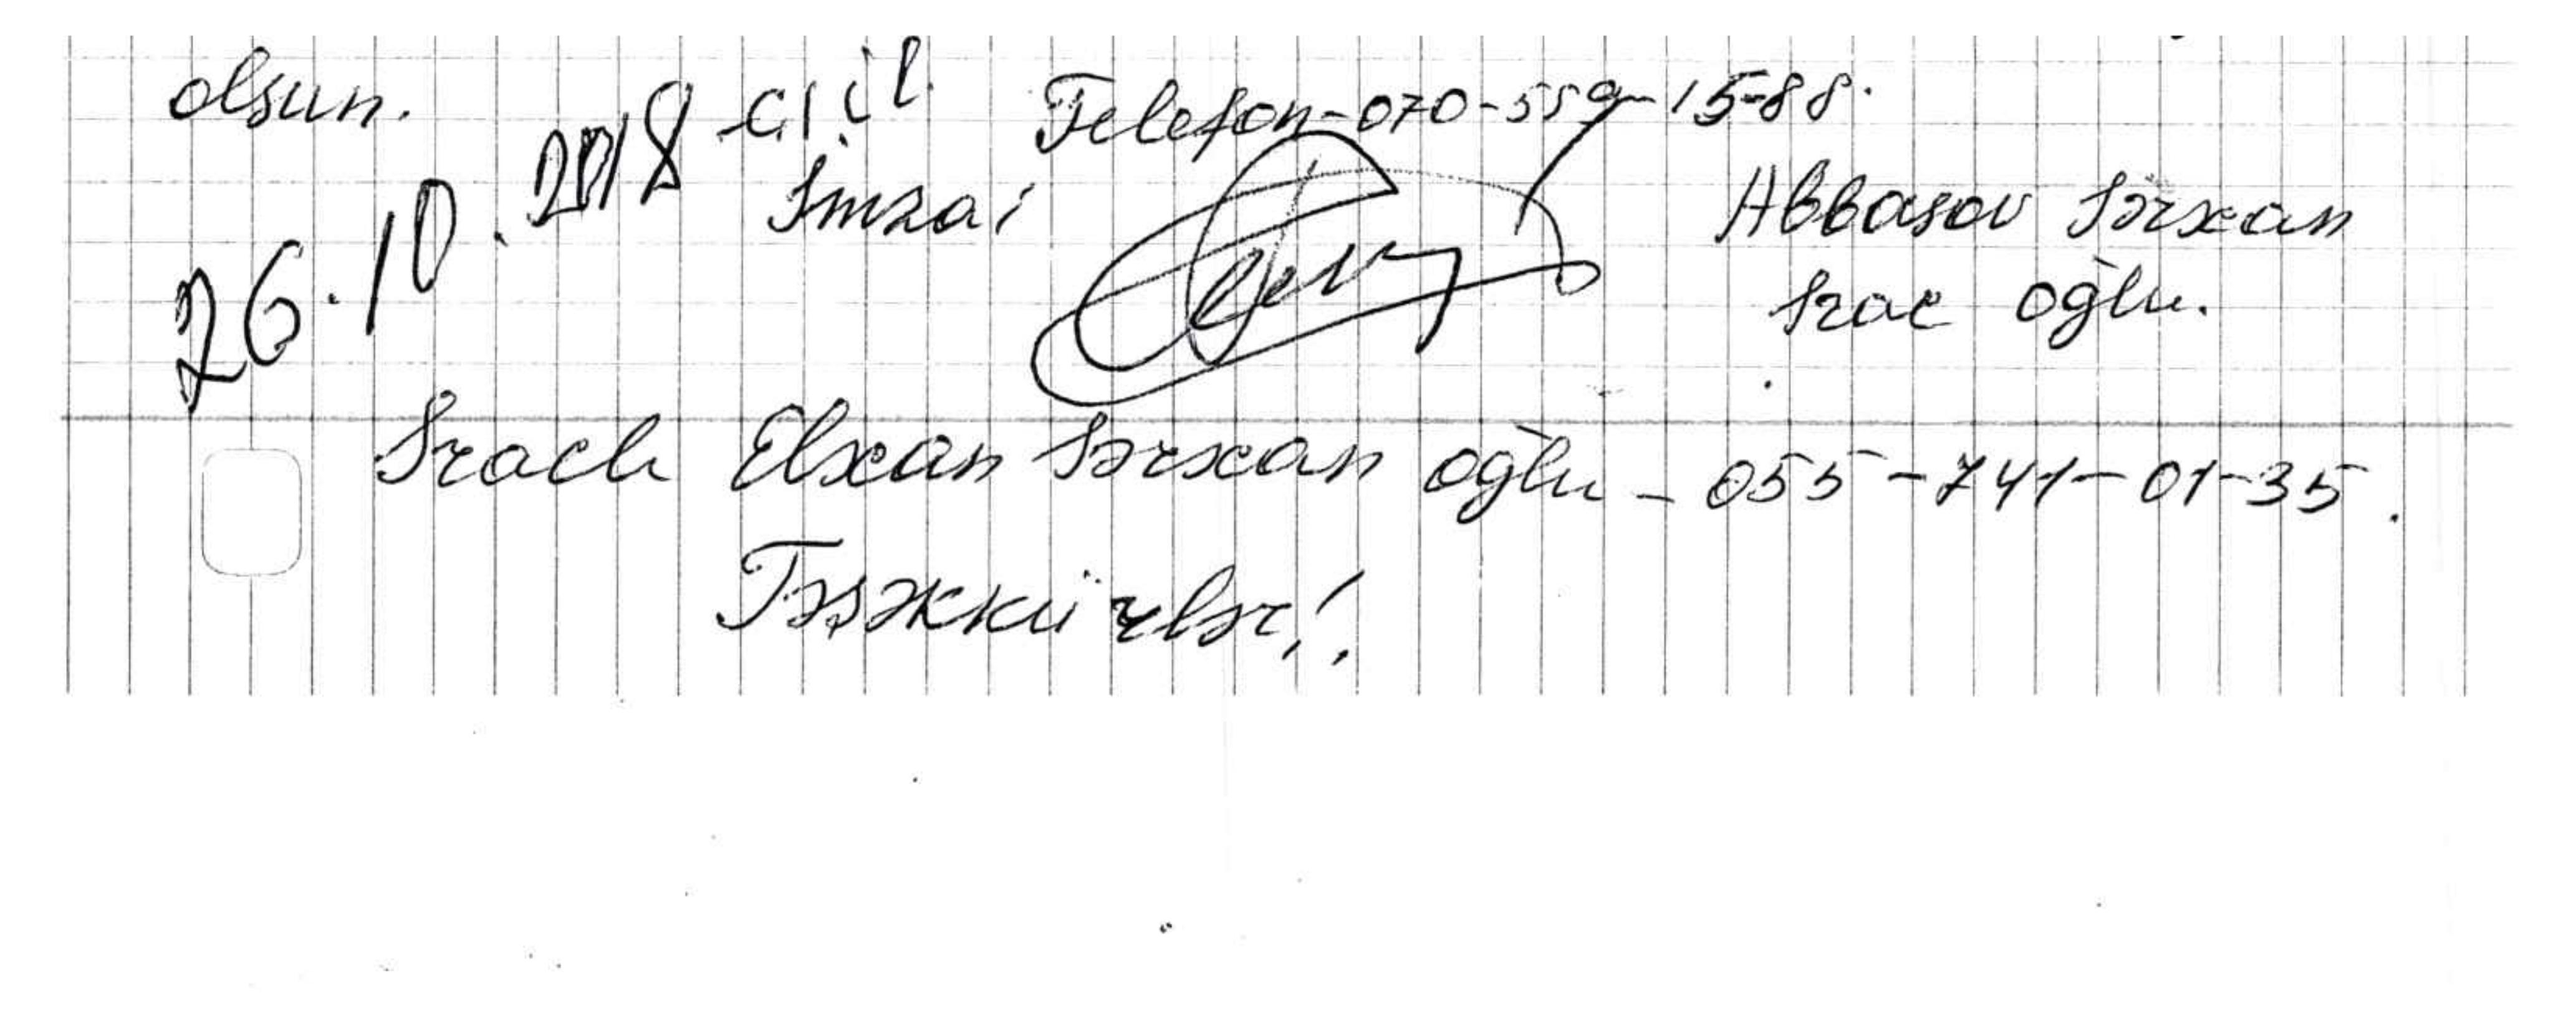 olsun.
26.10.2018-ci il. Telefon-070-559-15-88.
İmza: Abbasov Sərxan
İzac oğlu.
İzaclı Elxan Sərxan oğlu - 055-741-01-35.
Təşəkkürlər!